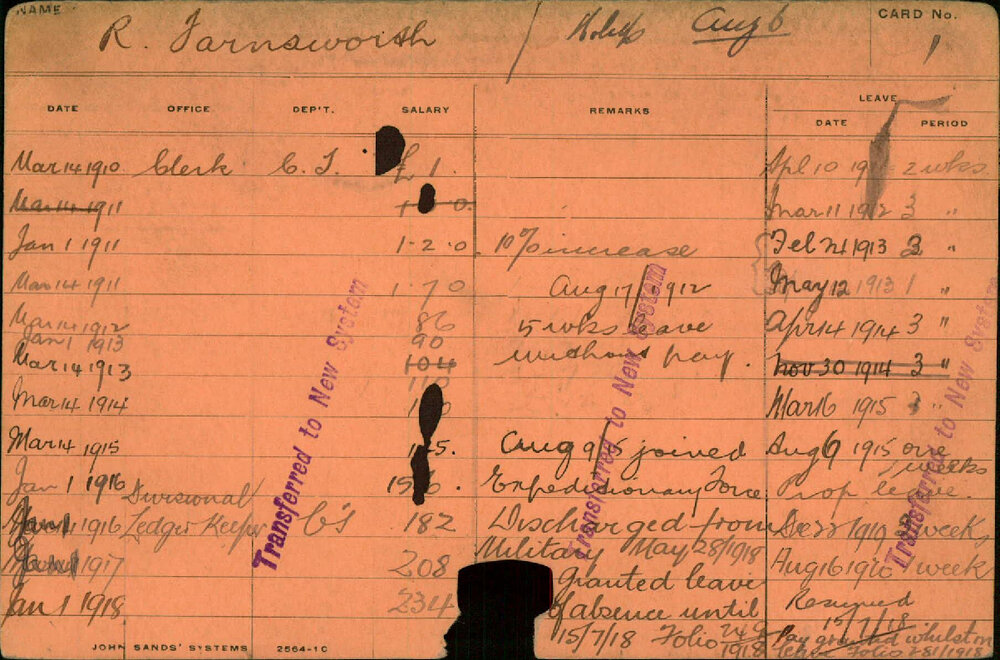 NAME
R. Farnsworth / Aug 6
CARD No.
1
DATE OFFICE DEP'T. SALARY REMARKS LEAVE
DATE PERIOD
Mar 14 1910 Clerk C. T. £ 1 Apl 10 2 wks
Mar 14 1911 Mar 11 1912 3 "
Jan 1 1911 1-2-0 10% increase Feb 21 1913 3 "
Mar 14 1911 1-7-0 Aug 17 1912 May 12 1913 1 "
Mar 14 1912 86 5 wks leave Apr 14 1914 3 "
Jan 1 1913 90 without pay.
Mar 14 1913 104 Nov 30 1914 3 "
110
Mar 14 1914 Mar 16 1915 "
Mar 14 1915 Aug 9/15 joined Aug 9 1915 one
weeks
Jan 1 1916 Expeditionary Force Prop leave.
Divisional
1916 Ledger Keeper C's 182 Discharged from 1919 week
1917 208 Military May 28/1918 Aug 16 week
Granted leave
Jan 1 1918 234 of absence until Resumed
15/7/18
15/7/18 Folio 1918 Pay granted whilst on
leave Folio 281/1918
Transferred to New System
Transferred to New System
Transferred to New System
JOHN SANDS' SYSTEMS 2564-10